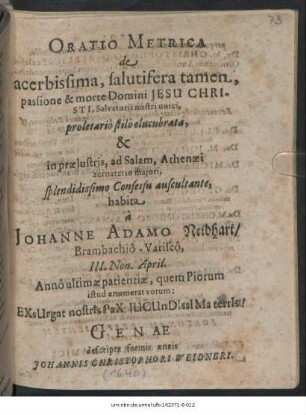 73
ORATIO METRICA
de
acerbissima, salutifera tamen,
passione & morte Domini JESU CHRI-
STI, Salvatoris nostri unici,
proletariò stilô elucubrata,
&
in prælustris, ad Salam, Athenæi
acroaterio majori,
splendidissimo Consessu auscultante,
habita
à
JOHANNE ADAMO Neidhart/
Brambachiô-Variscô,
III. Non. April.
Annô ultimæ patientiæ, quem Piorum
istud enumerat votum:
GENAE
descripta formis æneis
JOHANNIS CHRISTOPHORI WEIDNERI.
(1640)